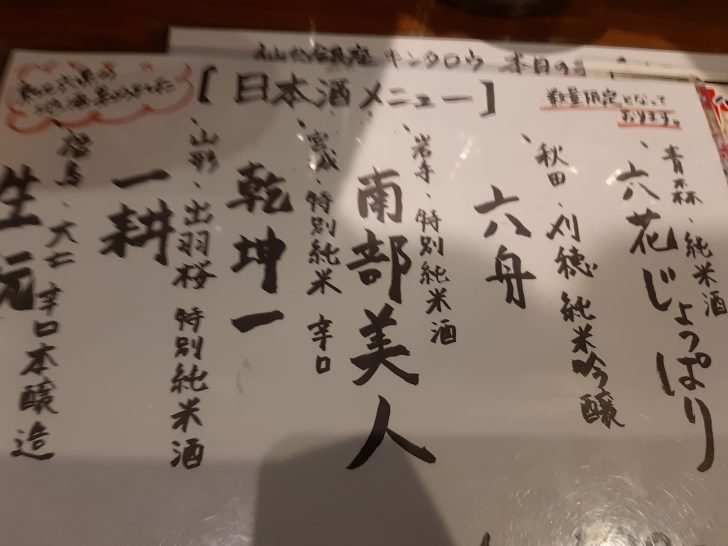 キンタロウ 本日の
[日本酒メニュー]
数量限定となって
おります。
・青森・純米酒
六花じょっぱり
・秋田・刈穂 純米吟醸
六舟
・岩手・特別純米酒
南部美人
・宮城・特別純米 辛口
乾坤一
・山形・出羽桜 特別純米酒
一耕
・福島・大七 辛口本醸造
生酛